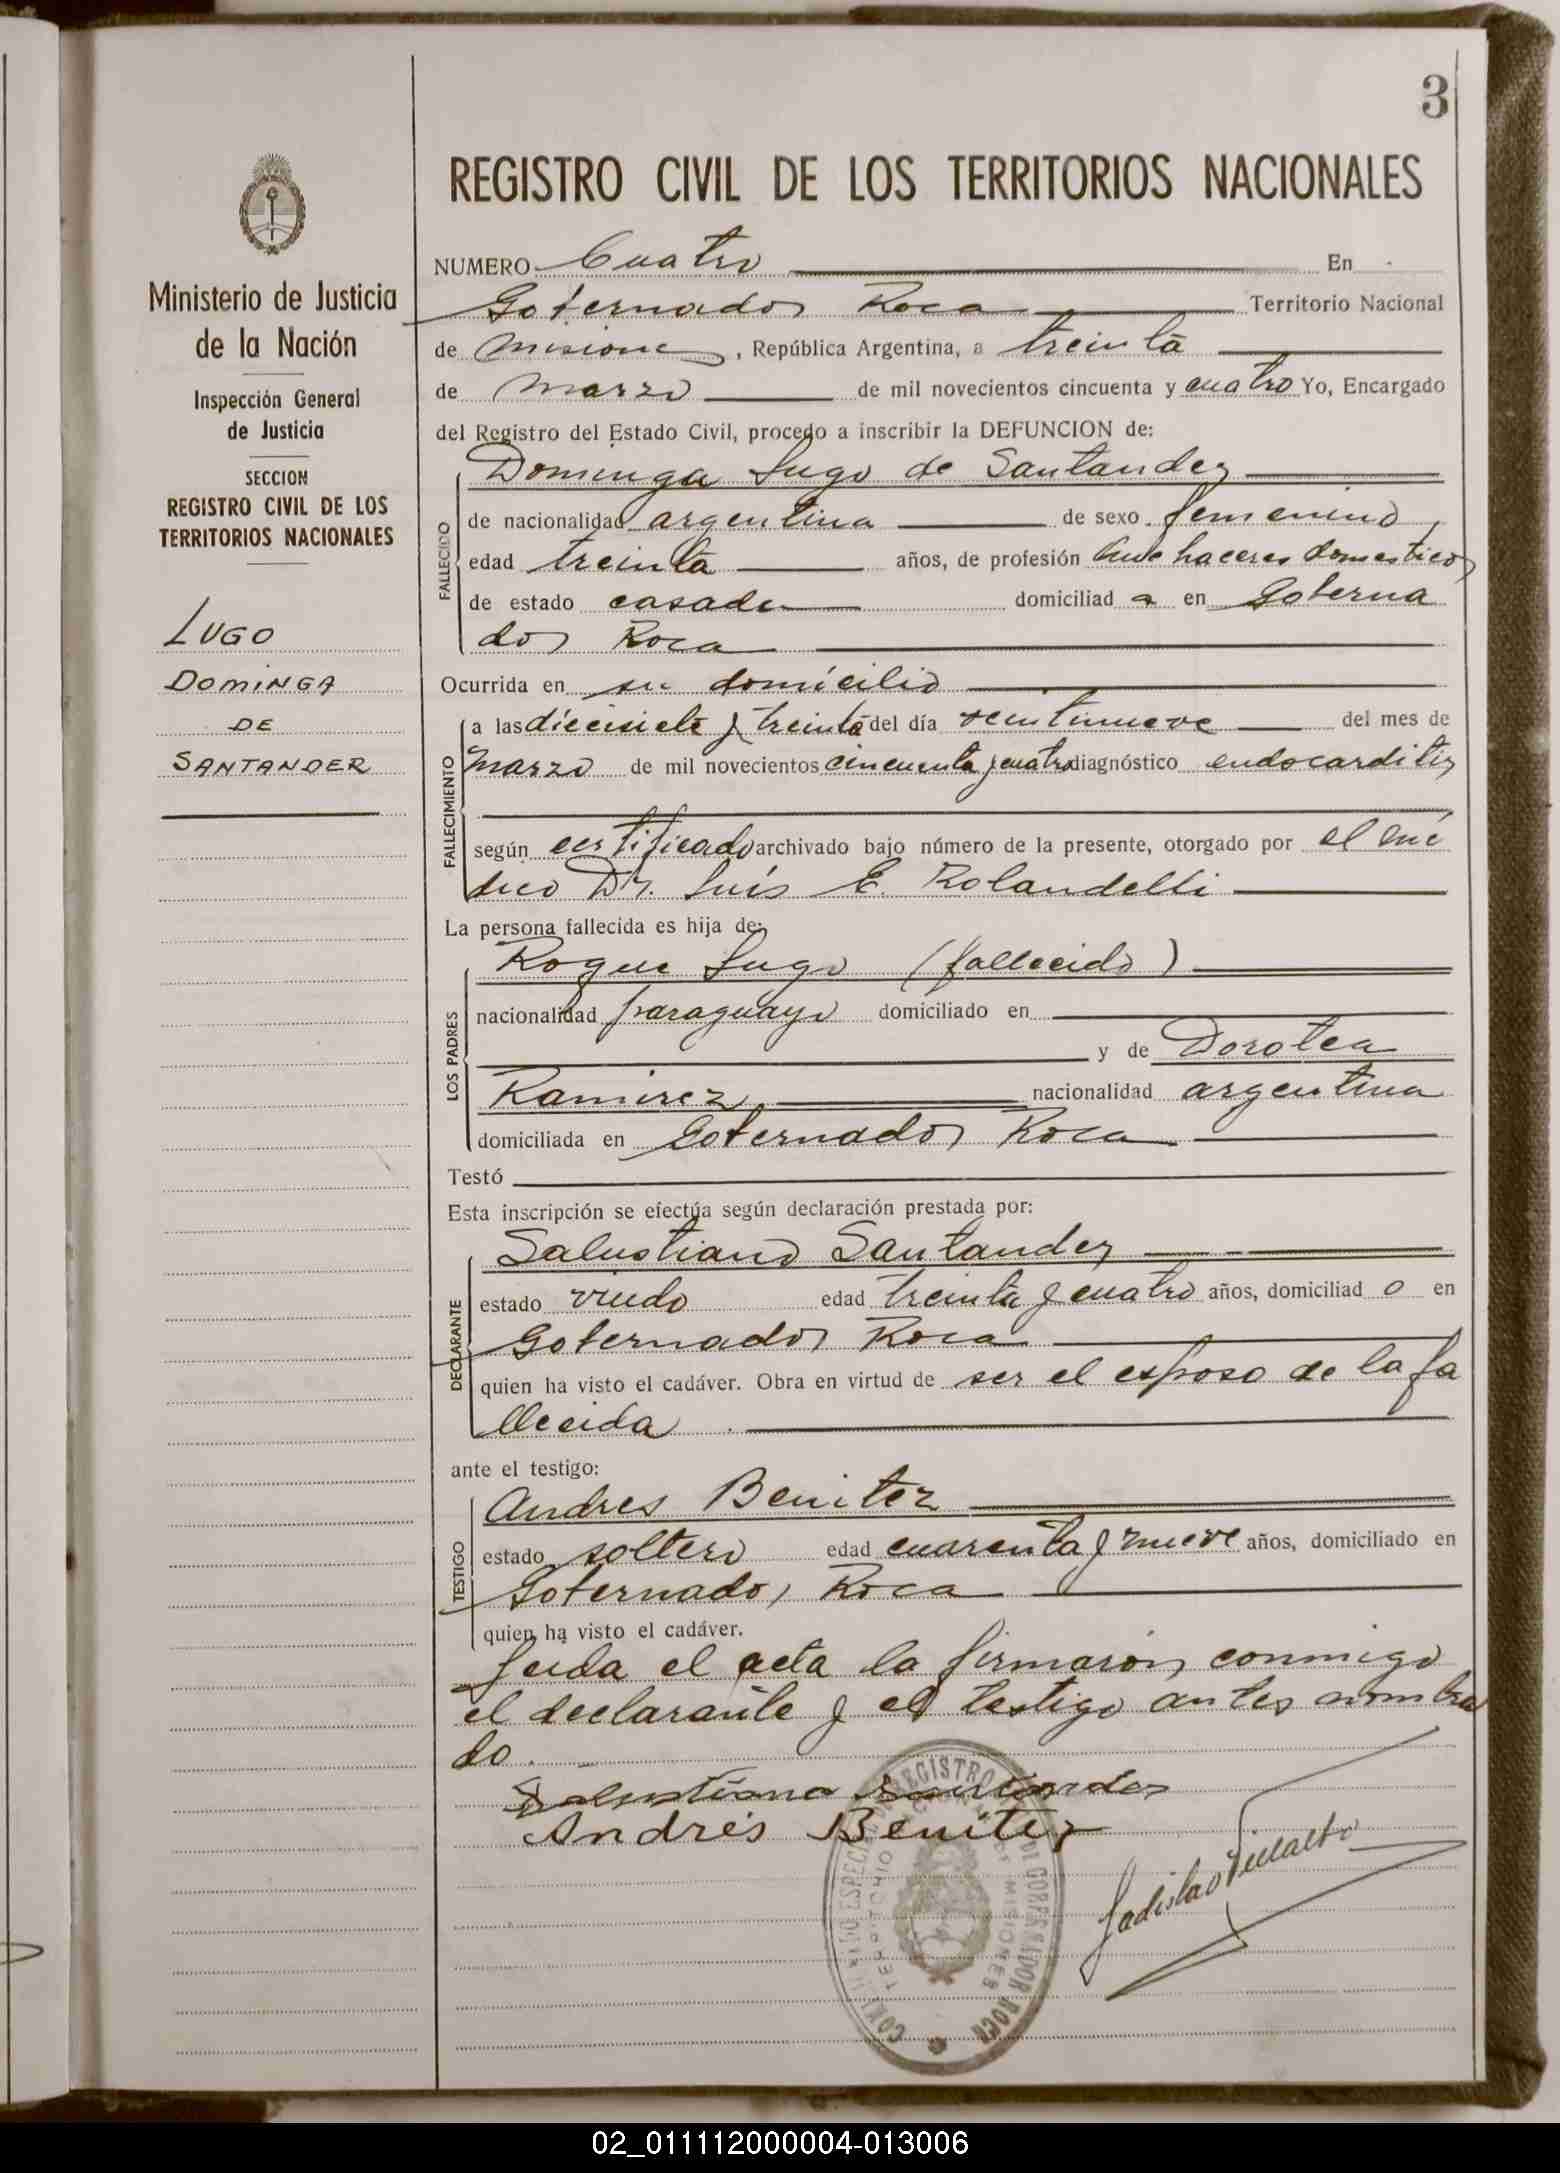 3
REGISTRO CIVIL DE LOS TERRITORIOS NACIONALES
Ministerio de Justicia
de la Nación
Inspección General
de Justicia
SECCION
REGISTRO CIVIL DE LOS
TERRITORIOS NACIONALES
LUGO
DOMINGA
DE
SANTANDER
NUMERO Cuatro En
Gobernador Roca Territorio Nacional
de Misiones, República Argentina, a treinta
de Marzo de mil novecientos cincuenta y cuatro Yo, Encargado
del Registro del Estado Civil, procedo a inscribir la DEFUNCION de:
Dominga Lugo de Santander
FALLECIDO
de nacionalidad argentina de sexo femenino,
edad treinta años, de profesión que haceres domesticos
de estado casada domiciliad a en Goberna
dor Roca
Ocurrida en su domicilio
FALLECIMIENTO
a las diecisiete y treinta del día veintinueve del mes de
Marzo de mil novecientos cincuenta y cuatro diagnóstico endocarditis
según certificado archivado bajo número de la presente, otorgado por el mé
dico Dr. Luís E. Rolandelli
La persona fallecida es hija de:
LOS PADRES
Roque Lugo (fallecido)
nacionalidad paraguayo domiciliado en
y de Dorotea
Ramirez nacionalidad argentina
domiciliada en Gobernador Roca
Testó
Esta inscripción se efectúa según declaración prestada por:
DECLARANTE
Salustiano Santander
estado viudo edad treinta y cuatro años, domiciliad o en
Gobernador Roca
quien ha visto el cadáver. Obra en virtud de ser el esposo de la fa
llecida
ante el testigo:
TESTIGO
Andres Benitez
estado soltero edad cuarenta y nueve años, domiciliado en
Gobernador Roca
quien ha visto el cadáver.
Leida el acta la firmaron conmigo
el declarante y el testigo antes nombra
do.
Salustiano Santander
Andrés Benitez
Ladislao Villalba
REGISTRO
TERRITORIO MISIONES
GOBERNADOR ROCA
02_011112000004-013006